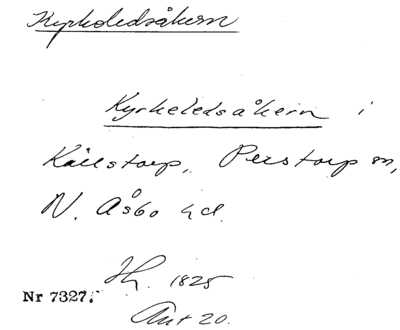 Kyrkoledsåkern
Kyrkeledsåkern i
Källstorp, Perstorp sn,
N. Åsbo hd.
Hh. 1825
Nr 7327.
Akt 20.